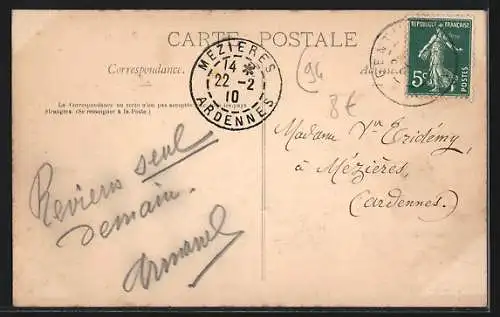 CARTE POSTALE
Correspondance.
La Correspondance au recto n'est pas acceptée
étrangers. (Se renseigner à la Poste.)
MÉZIÈRES
14 *
22 - 2
10
ARDENNES
(94
8€
RÉPUBLIQUE FRANÇAISE
5c
POSTES
Madame Vve
à Mézières,
(Ardennes).
Reviens seul
demain.
Armand